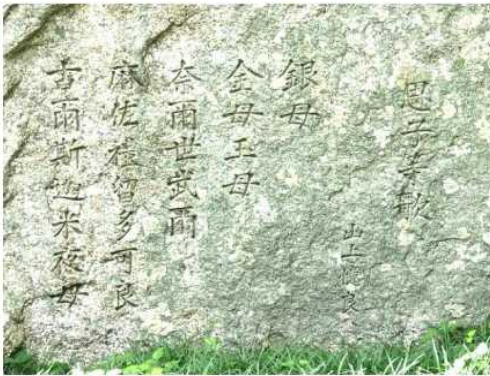 思子等歌
山上憶良
銀母
金母王母
奈爾世武爾
麻佐禮留多可良
古爾斯迦米夜母